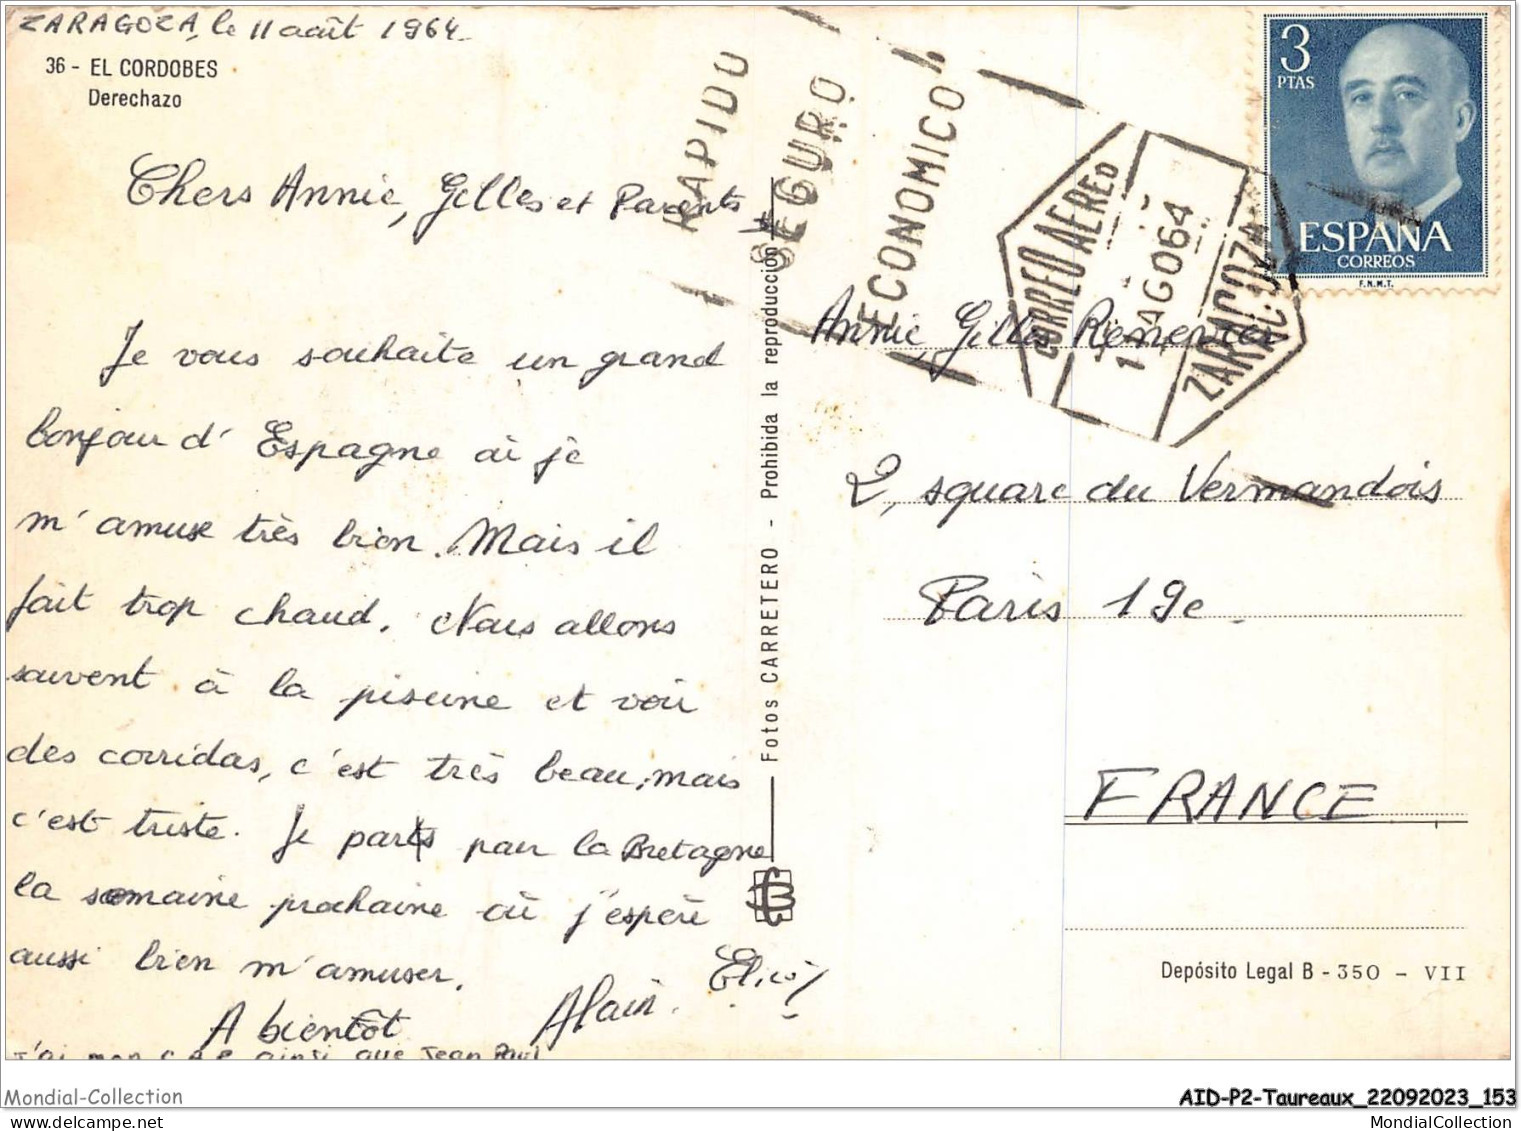 ZARAGOZA, le 11 août 1964
36 - EL CORDOBES
Derechazo
Chers Annie, Gilles et Parents
Je vous souhaite un grand
bonjour d'Espagne où je
m'amuse très bien. Mais il
fait trop chaud. Nous allons
souvent à la piscine et voir
des corridas, c'est très beau, mais
c'est triste. Je parts pour la Bretagne
la semaine prochaine où j'espère
aussi bien m'amuser.
A bientôt
Alain.
J'ai mon C.A.P. ainsi que Jean Paul
Fotos CARRETERO - Prohibida la reproducción
RAPIDO
SEGURO
ECONOMICO
CORREO AEREO
AGO64
ZARAGOZA
3
PTAS
ESPAÑA
CORREOS
F.N.M.T.
Annie, Gilles
2, square du Vermandois
Paris 19e
FRANCE
Depósito Legal B - 350 - VII
Mondial-Collection
AID-P2-Taureaux_22092023_153
MondialCollection